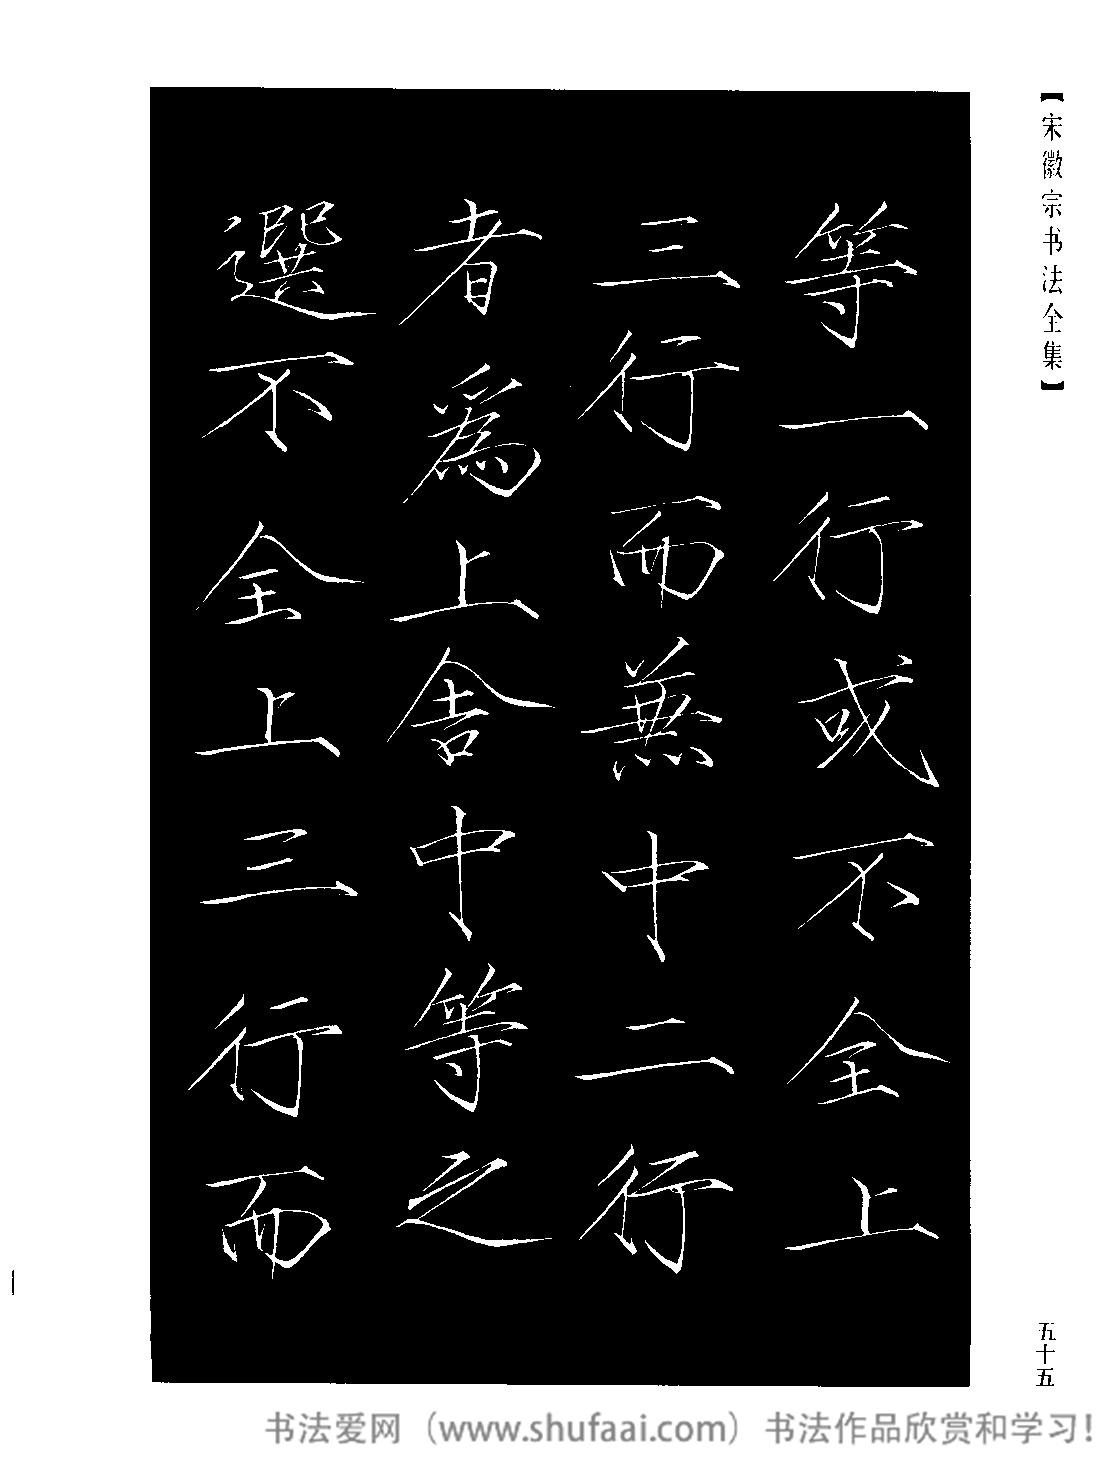 【宋徽宗书法全集】
等一行或不全上
三行而兼中二行
者爲上舍中等之
選不全上三行而
五十五
书法爱网（www.shufaai.com）书法作品欣赏和学习！